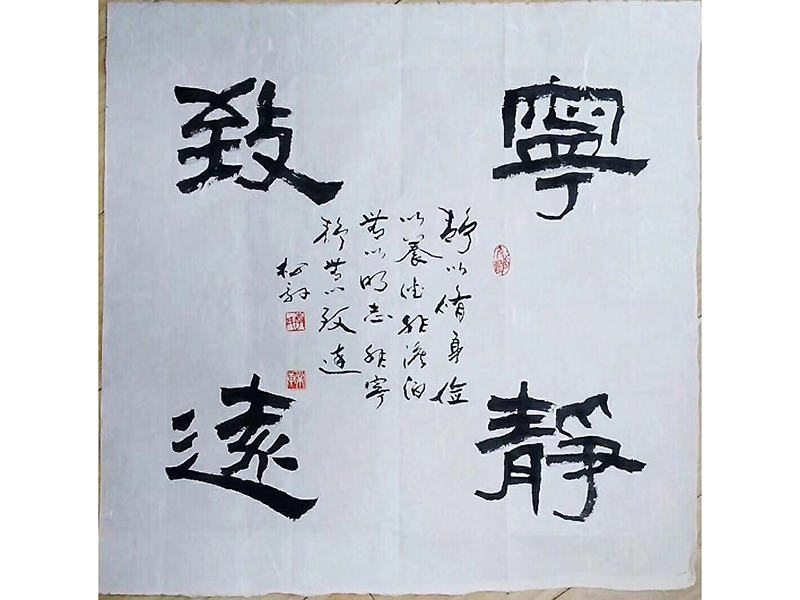 寧靜
致遠
靜以脩身儉
以養德非澹泊
無以明志非寧
靜無以致遠